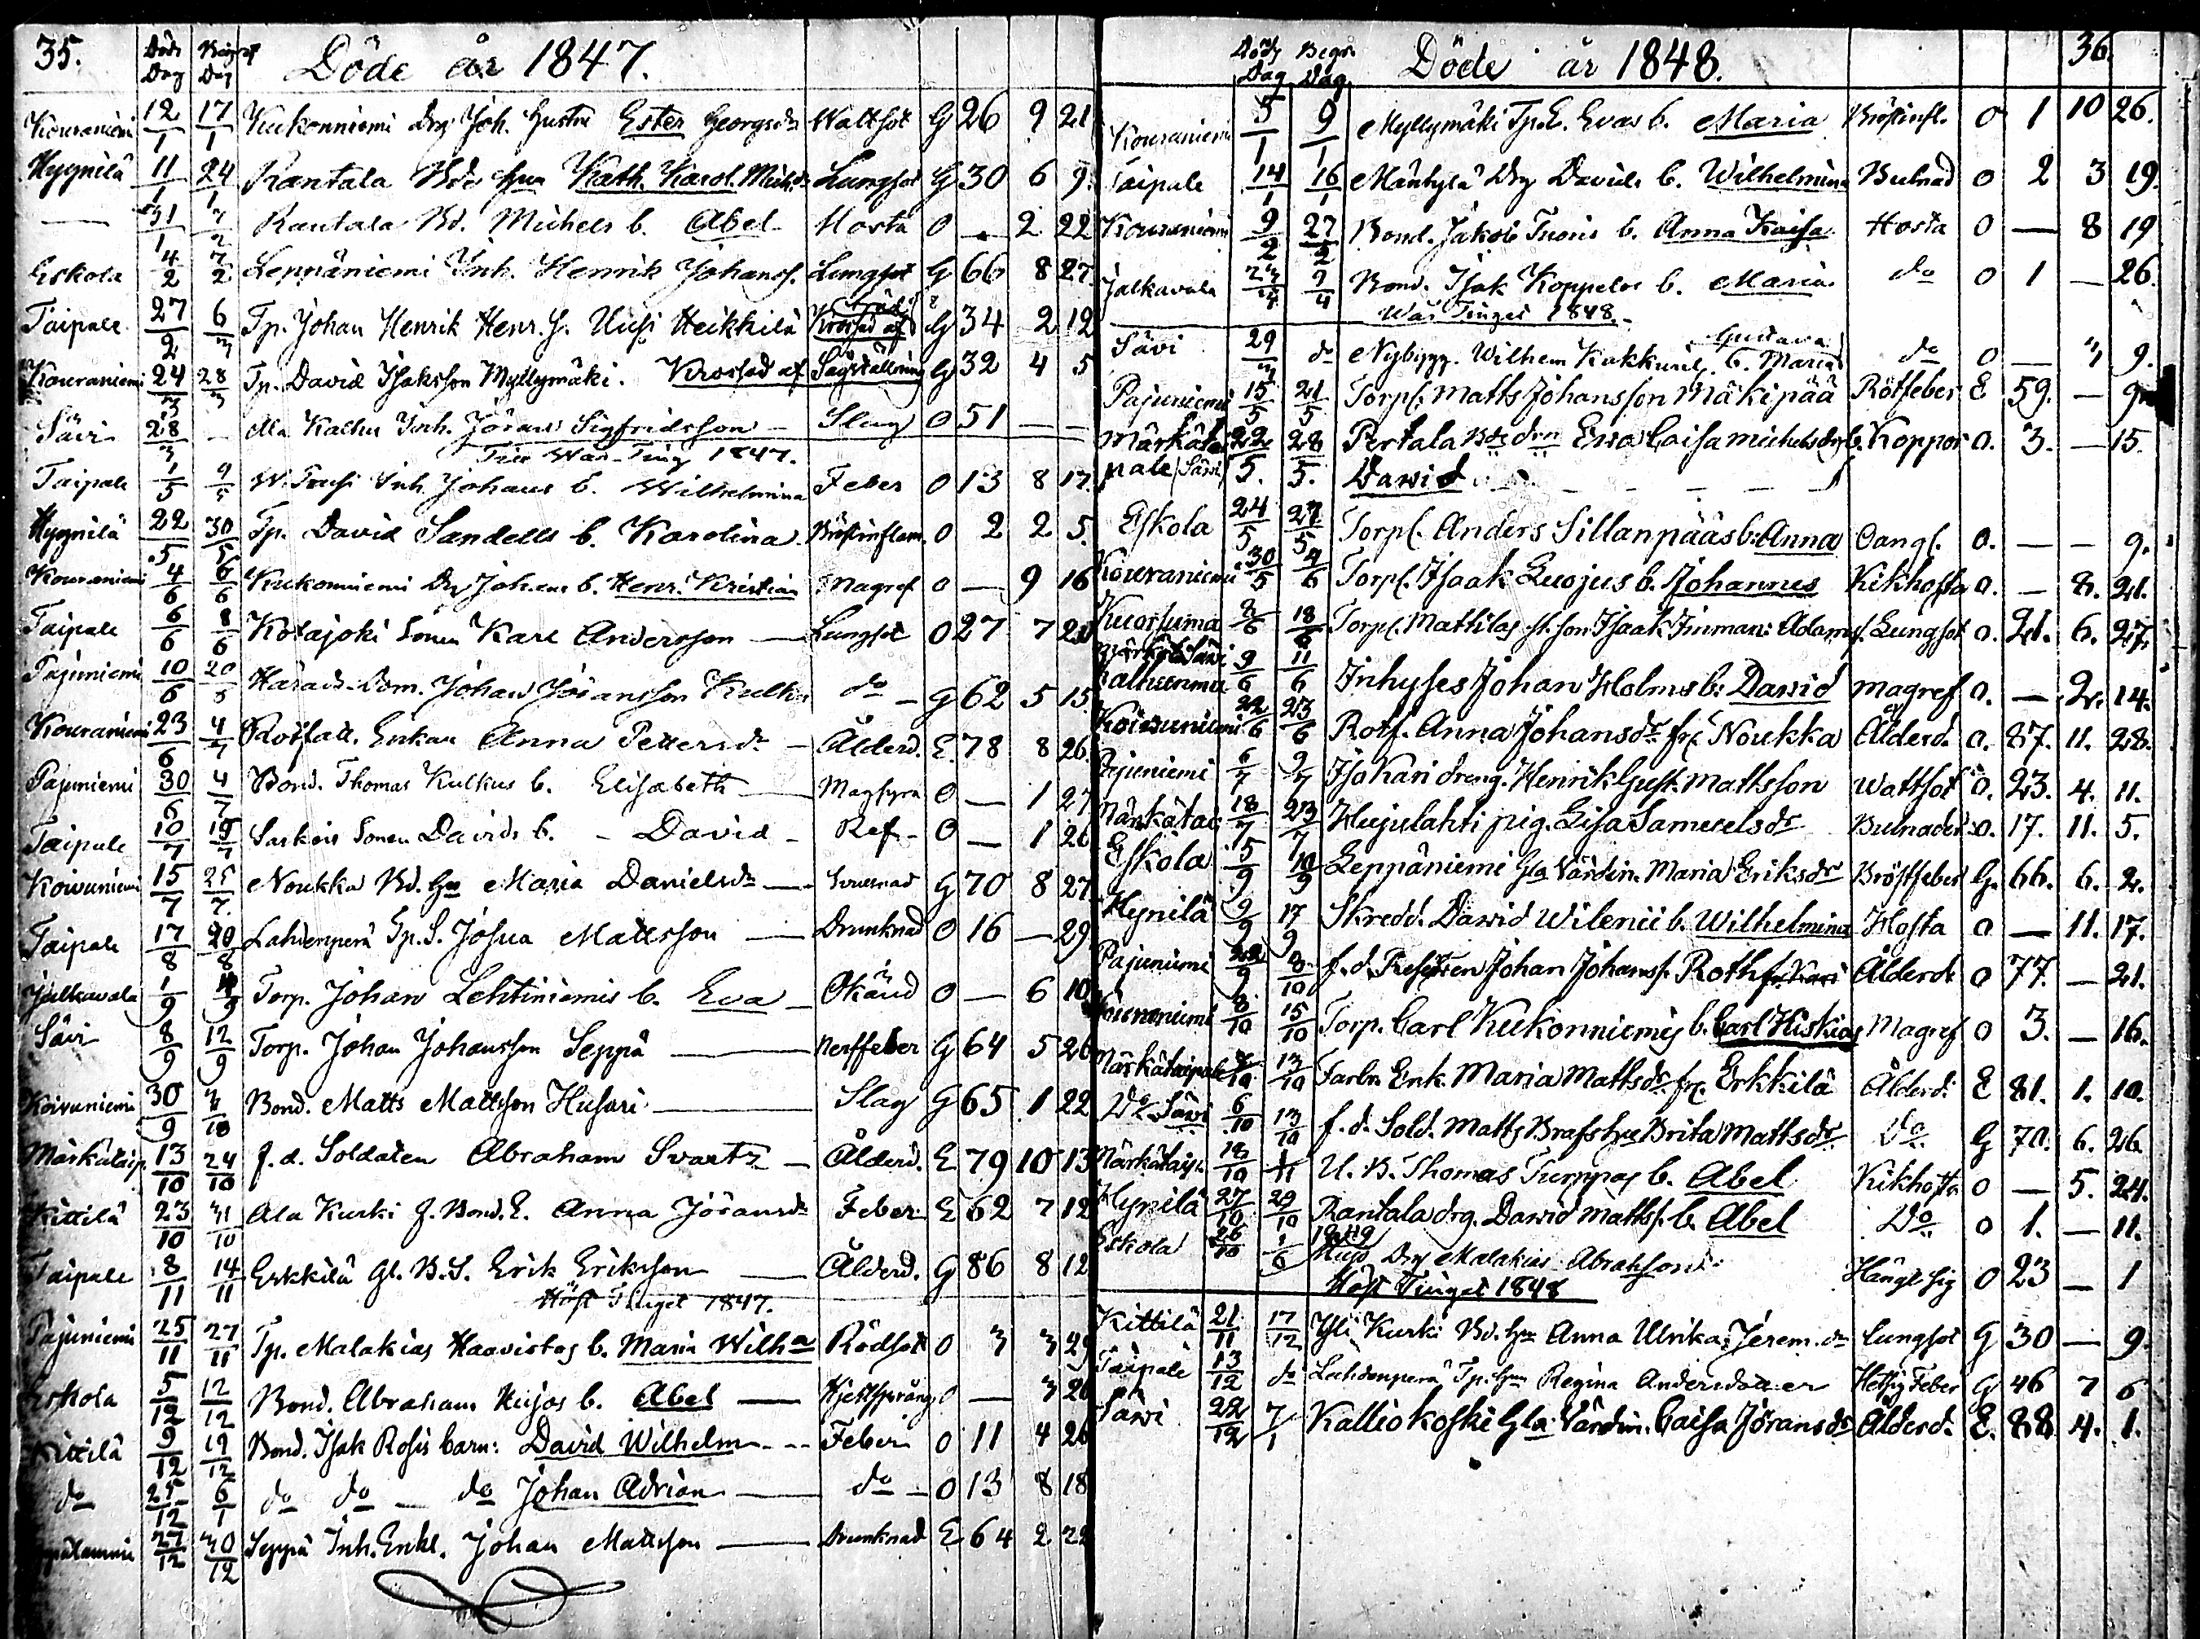 35.
Döde Dag Begrof Dag Döde år 1847.
Kouraniemi 12/1 17/1 Kukonniemi Drg Joh. Hustru Ester Georgsdr Wattsot G 26 9 21
Hygnilä 11/1 24/1 Rantala Bde hu Kath. Karol. Michdr Lungsot G 30 6 9
— 31/1 7/2 Rantala Bd. Michels b. Abel Hosta O — 2 22
Eskola 4/2 7/2 Leppäniemi Inh. Henrik Johanss. Lungsot G 66 8 27
Taipale 27/2 6/3 Tp. Johan Henrik Henr. S. Uusi Heikkilä Krossad af G 34 2 12
Kouraniemi 24/3 28/3 Tp. David Isaksson Myllymäki. Krossad af Sågställning G 32 4 5
Sävi 28/3 — Ala Kalku Inh. Jöran Sigfridsson — Slag O 51 — —
Till Wår-Ting 1847.
Taipale 1/5 9/5 W. Inh. Johans b. Wilhelmina Feber O 13 8 17
Hygnilä 22/5 30/5 Tp. David Sandells b. Karolina Bröstinflam. O 2 2 5.
Kouraniemi 4/6 6/6 Kukonniemi Drg Johans b. Henr. Kristian Magref O — 9 16
Taipale 6/6 8/6 Kotajoki Sonen Karl Andersson — Lungsot O 27 7 20
Pajuniemi 10/6 20/6 Härads-Dom. Johan Jöransson Kulku do — G 62 5 15
Kouraniemi 23/6 4/7 Rothatt. Enkan Anna Pettersdr — Ålderd. E. 78 8 26
Pajuniemi 30/6 4/7 Bond. Thomas Kulkus b. Elisabeth — Magsyra O — 1 27
Taipale 10/7 18/7 Saskois Sonen Davids b. — David — Ref — O — 1 26
Koivuniemi 15/7 25/7 Noukka Bd. Hu Maria Danielsdr — G 70 8 27
Taipale 17/8 20/8 Lahdenperä Tp. S. Josua Mattsson — Drunknad O 16 — 29
Jalkavala 1/9 Torp. Johan Lehtiniemis b. Eva — Okänd O — 6 10
Sävi 8/9 12/9 Torp. Johan Johansson Seppä — Nerffeber G 64 5 26
Koivuniemi 30/9 3/10 Bond. Matts Mattsson Husari — Slag G 65 1 22
Märkätaip. 13/10 24/10 f. d. Soldaten Abraham Svartz — Ålderd. E 79 10 13
Kittilä 23/10 31/10 Ala Kurki f. Bond. E. Anna Jöransdr Feber E 62 7 12
Taipale 8/11 14/11 Erkkilä Gl. B. S. Erik Eriksson — Ålderd. G 86 8 12
Höst Tinget 1847.
Pajuniemi 25/11 27/11 Tp. Malakias Haavistos b. Maria Wilha Rödsot O 3 3 29
Eskola 5/12 12/12 Bond. Abraham Hujos b. Abel — Hjertsprång O — 3 20
Kittilä 9/12 19/12 Bond. Isak Rosis barn: David Wilhelm — Feber O 11 4 26
do 25/12 6/1 do do — do Johan Adrian — do — O 13 8 18
27/12 30/12 Seppä Inh. Enkl. Johan Mattsson — Drunknad E 64 2 22
36.
Döds Dag Begr. Dag Döde år 1848.
Kouraniemi 5/1 9/1 Myllymäki Tp. E. Evas b. Maria Bröstinfl. O 1 10 26.
Taipale 14/1 16/1 Mänkylä Drg Davids b. Wilhelmina Bulnad O 2 3 19.
Kouraniemi 9/2 27/2 Bond. Jakob Tuoris b. Anna Kaisa Hosta O — 8 19
Jalkavala Bond. Isak Koppelos b. Maria do O 1 — 26
Wår Tinget 1848.
Sävi 29/3 do Nybygg. Wilhem Kakkuris b. Gustava Maria do O — 3 9.
Pajuniemi 15/5 21/5 Torp. Matts Johansson Mäkipää Rötfeber E 59. — 9
Märkätai pale (Säwi 22/5. 28/5. Pertala Bde drn Ewa Caisa Michelsdrs b. Koppor O. 3. — 15.
Dawid
Eskola 24/5 27/5 Torp. Anders Sillanpääs b. Anna Oangf. O. — — 9.
Kouraniemi 30/5 4/6 Torp. Isaak Luojus b. Johannes Kikhosta O. — 8. 21.
Kuorsuma 18/6 Torp. Mathilas st. son Isaak Finman: Adams. Lungsot O. 21. 6. 27.
9/6 11/6 Inhyses Johan Holms b. Dawid Magref O. — 2. 14.
Koiwuniemi 22/6 23/6 Rotf. Anna Johansdr. fr. Noukka Ålderd. O. 87. 11. 28.
Pajuniemi 6/7 9/7 Isokari dreng. Henrik Gust. Mattsson Wattsot O. 23. 4. 11.
Märkätai 18/7 23/7 Hujulahti pig. Lisa Samuelsdr Bulnader O. 17. 11. 5.
Eskola 5/9 10/9 Leppäniemi Gla Värdin. Maria Eriksdr Bröstfeber G. 66. 6. 2.
Hynilä 9/9 17/9 Skredd. Dawid Wilenii b. Wilhelmina Hosta O — 11. 17.
Pajuniemi f. d. Johan Johanss. Roth fr. Kari Ålderd. O 77. — 21.
Kouraniemi 8/10 15/10 Torp. Carl Kukonniemis b. Carl Hiskias Magref O 3. — 16.
Märkätaipale 13/10 Farbr. Enk. Maria Mattsdr fr. Erkkilä Ålderd. E 81. 1. 10.
Do Säwi 6/10 13/10 f. d. Sold. Matts Brafs hu Brita Mattsdr Do G 70. 6. 26.
Märkätaip. U. B. Thomas Turppas b. Abel Kikhosta O — 5. 24.
Hynilä 27/10 29/10 Rantala drg. Dawid Mattss. b. Abel Do O 1. — 11.
Eskola 26/10 1849 Hujo Drg Malakias Abrahsson Hängt sig O 23 — 1
Höst Tinget 1848
Kittilä 21/11 17/12 Yli Kurki Bd. Hu Anna Ulrika Jerem.dr Lungsot G 30 — 9.
Taipale 13/12 do Lahdenperä Tp. Hu Regina Andersdotter Hetsig Feber G 46 7 6
Säwi 22/12 7/1 Kalliokoski Gla Värdin. Caisa Jöransdr Ålderd. E. 88 4. 1.